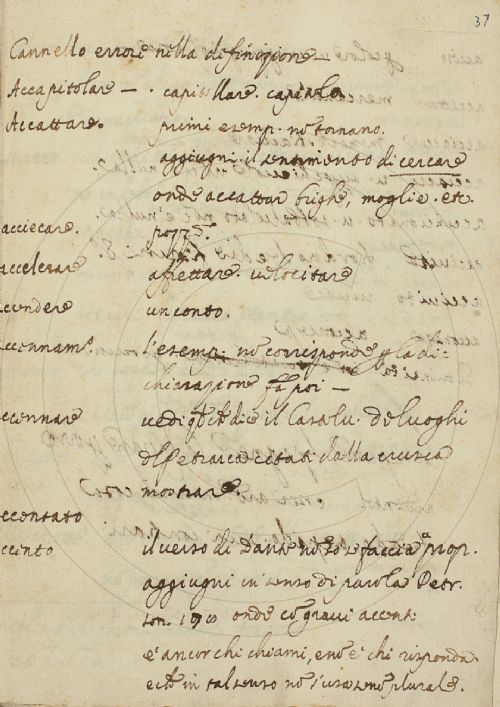 37
Cannello errore nella definizione
Accapitolare — . capitollare. capitolo
Accattare. primi esemp. nõ tornano.
aggiugni. il sentimento di cercare
onde accattar brighe, moglie. etc.
acciecare.
accelerare affrettare. velocitare
ccendere un conto.
ccennam.º l'esemp. nõ corrisponde
chiarazione poi —
ccennare vedi dice il de luoghi
Petrarca citati dalla crusca
mostrare.
ccentato
ccento il verso di Dante nõ faccia prop.
aggiugni in senso di parola Petr.
son. onde cõ gravi accenti
è ancor chi chiami, e nõ è chi risponda
in tal senso nõ plurale.